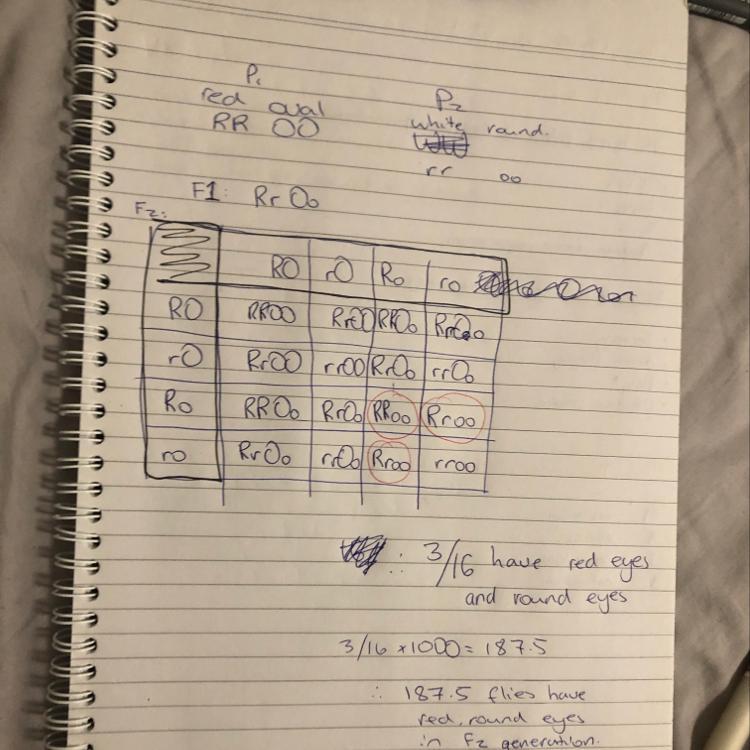 P1
red oval
RR OO
P2
white round.
rr oo
F1: Rr Oo
F2:
RO rO Ro ro
RO RROO RrOO RROo RrOo
rO RrOO rrOO RrOo rrOo
Ro RROo RrOo RRoo Rroo
ro RrOo rrOo Rroo rroo
∴ 3/16 have red eyes
and round eyes
3/16 x1000 = 187.5
∴ 187.5 flies have
red, round eyes
in F2 generation.